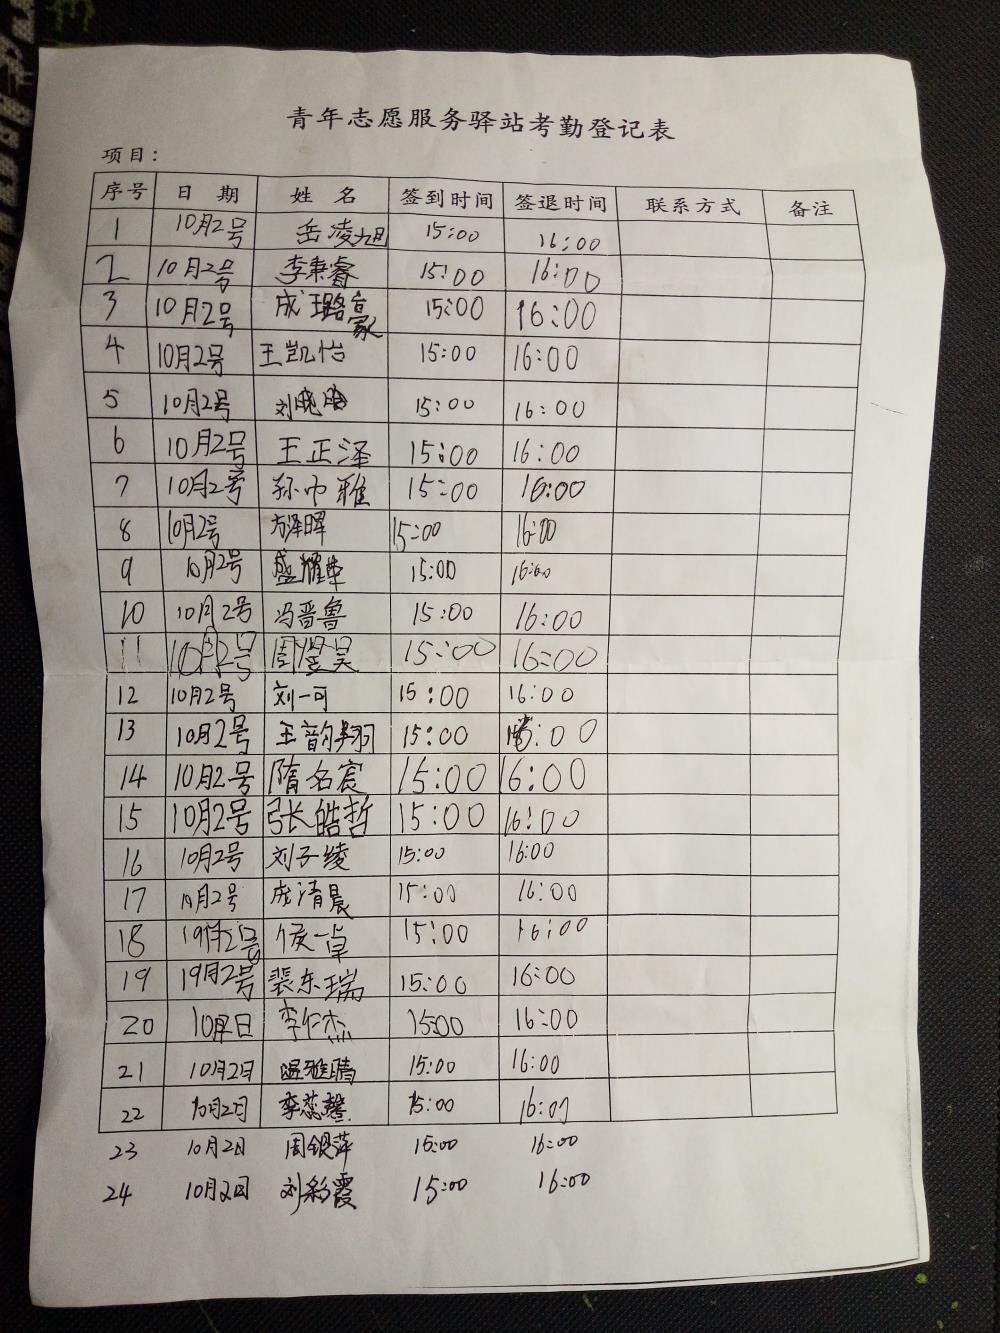 青年志愿服务驿站考勤登记表
项目:
序号 日期 姓名 签到时间 签退时间 联系方式 备注
1 10月2号 岳凌旭 15:00 16:00
2 10月2号 李秉睿 15:00 16:00
3 10月2号 成璐豪 15:00 16:00
4 10月2号 王凯怡 15:00 16:00
5 10月2号 刘晓 15:00 16:00
6 10月2号 王正泽 15:00 16:00
7 10月2号 孙巾雅 15:00 16:00
8 10月2号 方泽晖 15:00 16:00
9 10月2号 盛耀 15:00 16:00
10 10月2号 冯晋鲁 15:00 16:00
11 10月2号 周煜昊 15:00 16:00
12 10月2号 刘一可 15:00 16:00
13 10月2号 王韵翔 15:00 16:00
14 10月2号 隋名宸 15:00 16:00
15 10月2号 张皓哲 15:00 16:00
16 10月2号 刘子绫 15:00 16:00
17 10月2号 庞清晨 15:00 16:00
18 2号 侯一卓 15:00 16:00
19 19月2号 裴东瑞 15:00 16:00
20 10月日 李仁杰 15:00 16:00
21 10月2日 温雅晴 15:00 16:00
22 10月2日 李蕊馨 15:00 16:00
23 10月2日 周银萍 15:00 16:00
24 10月2日 刘彩霞 15:00 16:00